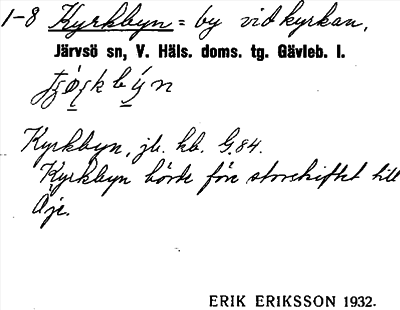 1-8 Kyrkbyn = by vid kyrkan,
Järvsö sn, V. Häls. doms. tg. Gävleb. l.
Kyrkbyn, jb. kb. G. 84.
Kyrkbyn hörde före storskiftet till
Öje.
ERIK ERIKSSON 1932.